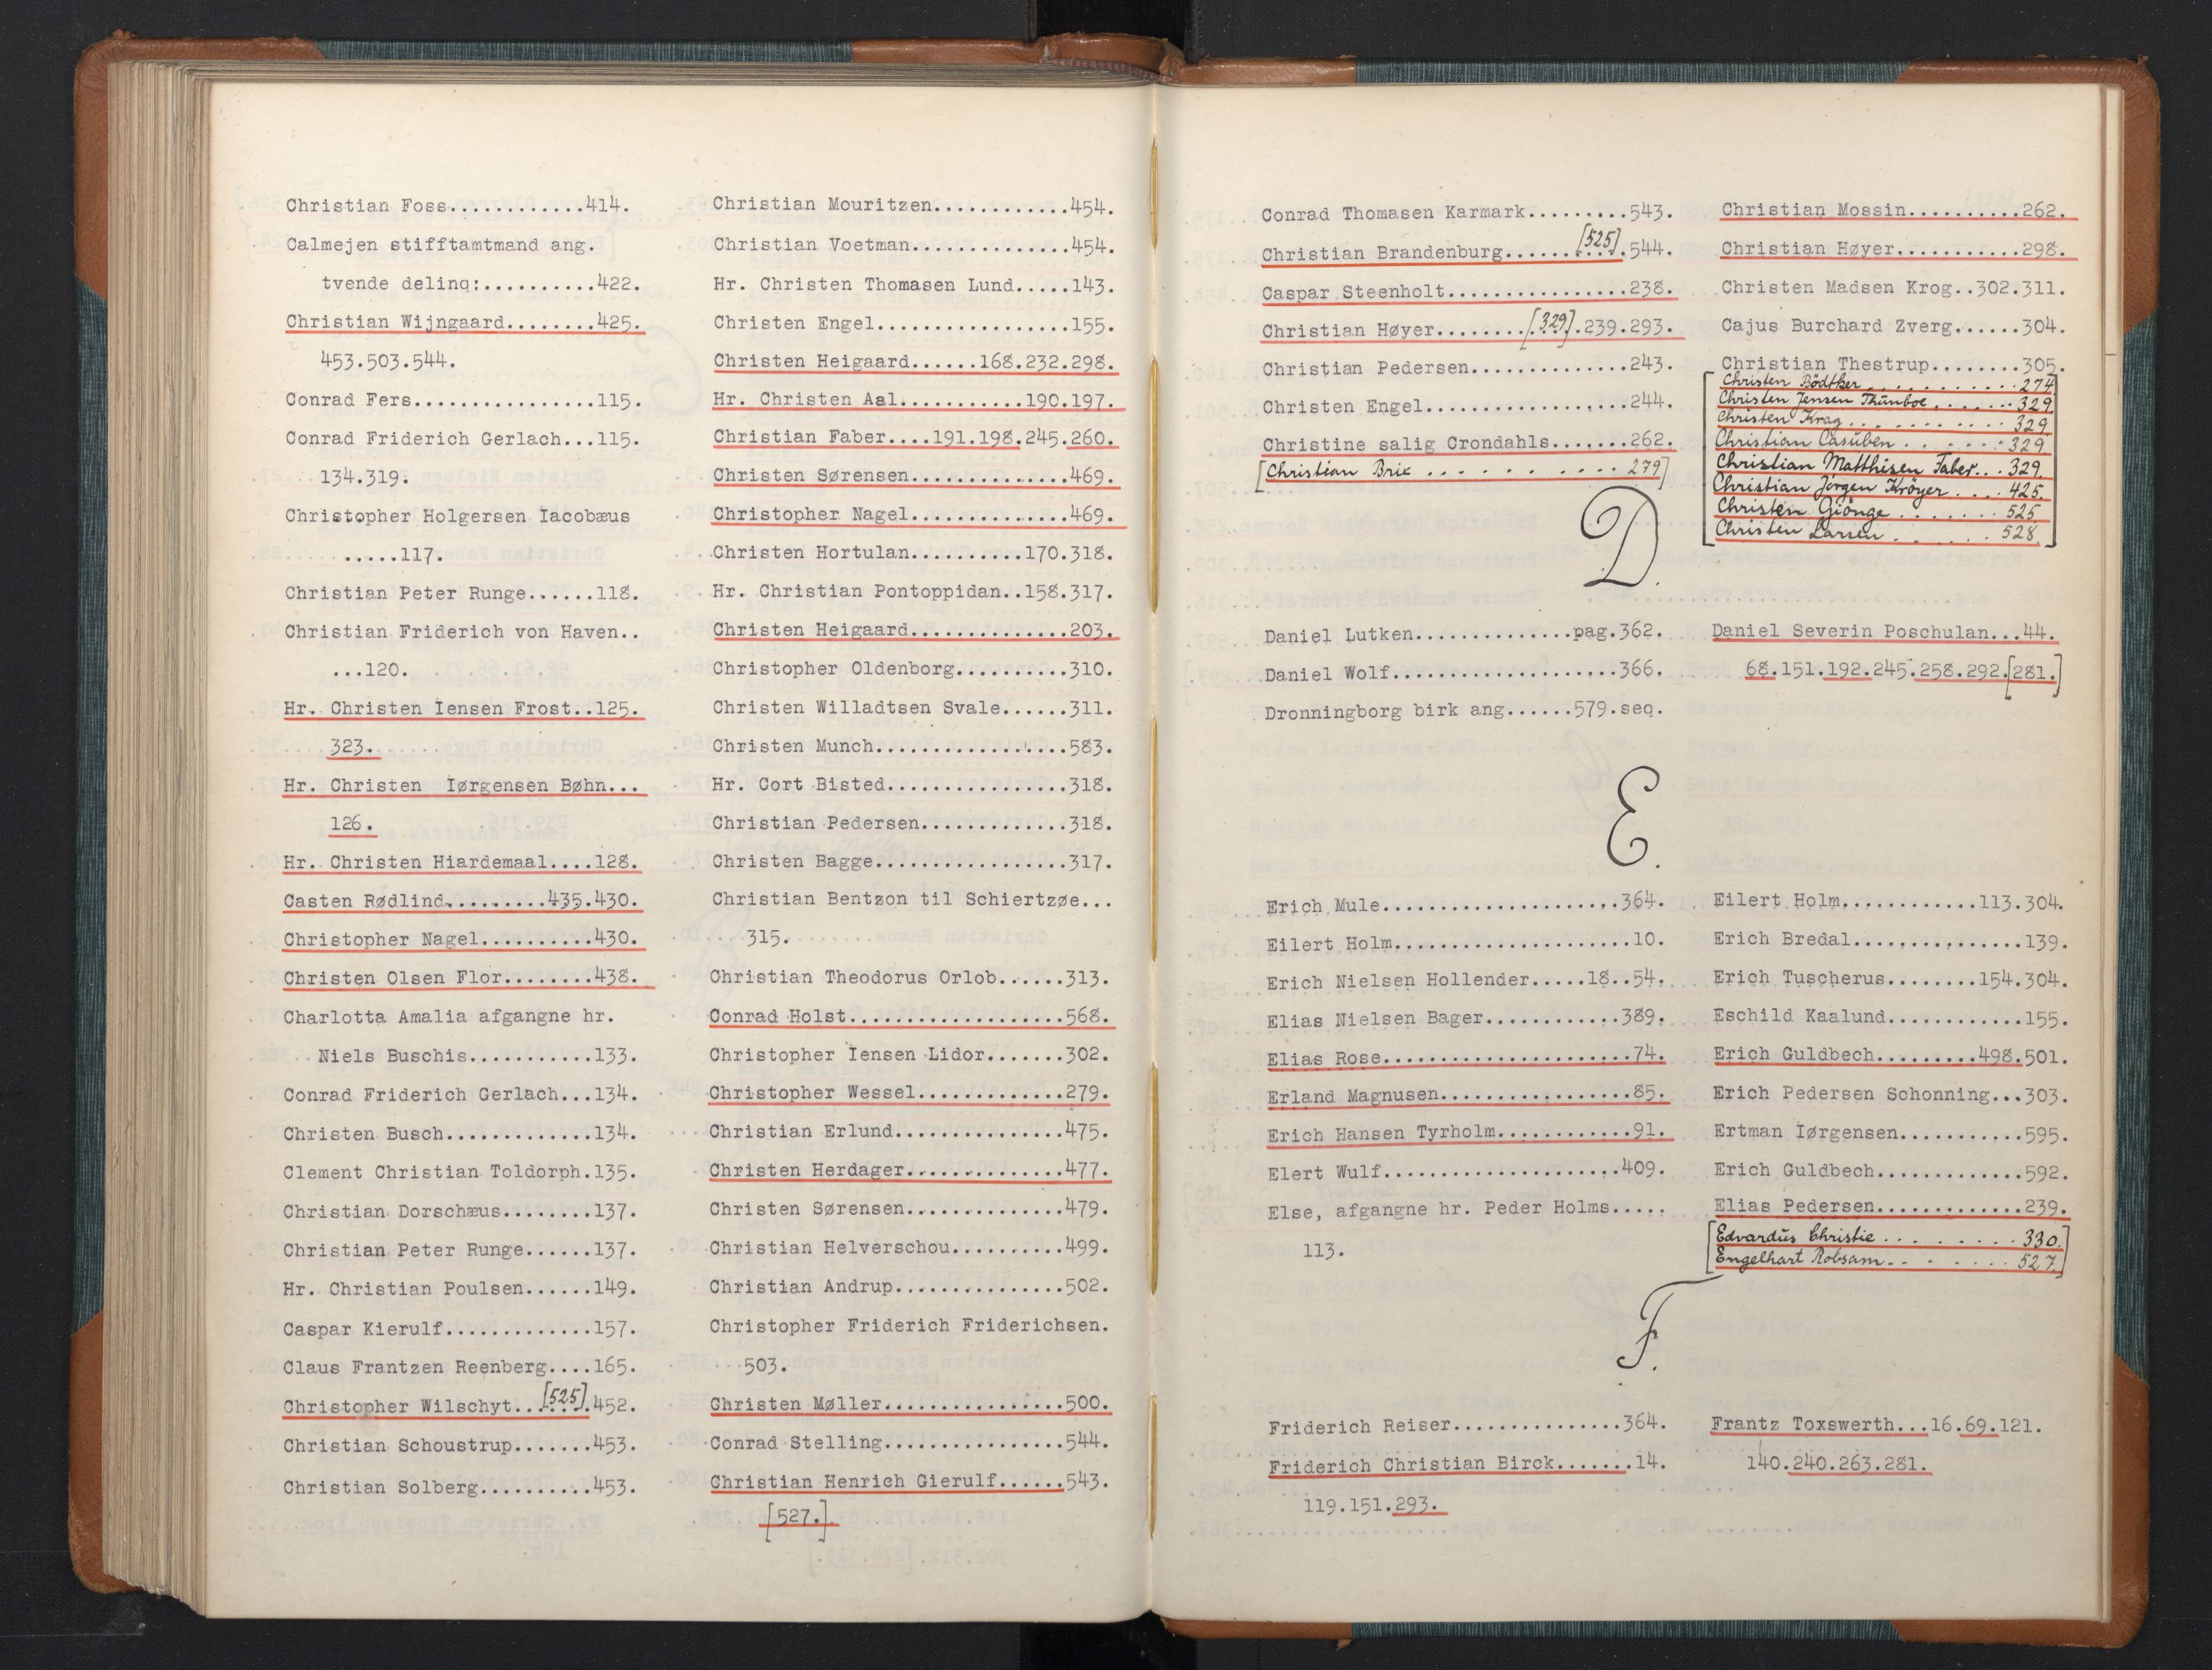 Christian Foss............414.
Calmejen stifftamtmand ang.
tvende delinq:..........422.
Christian Wijngaard........425.
453.503.544.
Conrad Fers................115.
Conrad Friderich Gerlach...115.
134.319.
Christopher Holgersen Iacobæus
.....117.
Christian Peter Runge......118.
Christian Friderich von Haven..
...120.
Hr. Christen Iensen Frost..125.
323.
Hr. Christen Iørgensen Bøhn...
126.
Hr. Christen Hiardemaal....128.
Casten Rødlind.........435.430.
Christopher Nagel..........430.
Christen Olsen Flor........438.
Charlotta Amalia afgangne hr.
Niels Buschis...........133.
Conrad Friderich Gerlach...134.
Christen Busch.............134.
Clement Christian Toldorph.135.
Christian Dorschæus........137.
Christian Peter Runge......137.
Hr. Christian Poulsen......149.
Caspar Kierulf.............157.
Claus Frantzen Reenberg....165.
Christopher Wilschyt..[525].452.
Christian Schoustrup.......453.
Christian Solberg..........453.
Christian Mouritzen............454.
Christian Voetman..............454.
Hr. Christen Thomasen Lund.....143.
Christen Engel.................155.
Christen Heigaard......168.232.298.
Hr. Christen Aal...........190.197.
Christian Faber....191.198.245.260.
Christen Sørensen..............469.
Christopher Nagel..............469.
Christen Hortulan..........170.318.
Hr. Christian Pontoppidan..158.317.
Christen Heigaard..............203.
Christopher Oldenborg..........310.
Christen Willadtsen Svale......311.
Christen Munch.................583.
Hr. Cort Bisted................318.
Christian Pedersen.............318.
Christen Bagge.................317.
Christian Bentzon til Schiertzøe...
315.
Christian Theodorus Orlob......313.
Conrad Holst...................568.
Christopher Iensen Lidor.......302.
Christopher Wessel.............279.
Christian Erlund...............475.
Christen Herdager..............477.
Christen Sørensen..............479.
Christian Helverschou..........499.
Christian Andrup...............502.
Christopher Friderich Friderichsen.
503.
Christen Møller................500.
Conrad Stelling................544.
Christian Henrich Gierulf......543.
[527.]
Conrad Thomasen Karmark.........543.
Christian Brandenburg.......[525].544.
Caspar Steenholt................238.
Christian Høyer........[329].239.293.
Christian Pedersen..............243.
Christen Engel..................244.
Christine salig Crondahls.......262.
[Christian Brix . . . . . . . . . . 279]
Christian Mossin..........262.
Christian Høyer...........298.
Christen Madsen Krog..302.311.
Cajus Burchard Zverg......304.
Christian Thestrup........305.
[Christen Bödtker . . . . . . . . . . . 274
Christen Jensen Thünboe . . . . . . . 329
Christen Krag . . . . . . . . . . . 329
Christian Casüben . . . . . . 329
Christian Matthisen Faber . . . 329.
Christian Jörgen Kröyer . . . . 425.
Christen Giönge . . . . . . . 525
Christen Larsen . . . . . . 528.]
D.
Daniel Lutken..............pag.362.
Daniel Wolf....................366.
Dronningborg birk ang......579.seq.
Daniel Severin Poschulan...44.
68.151.192.245.258.292.[281.]
E.
Erich Mule.....................364.
Eilert Holm.....................10.
Erich Nielsen Hollender.....18..54.
Elias Nielsen Bager............389.
Elias Rose......................74.
Erland Magnusen.................85.
Erich Hansen Tyrholm............91.
Elert Wulf.....................409.
Else, afgangne hr. Peder Holms.....
113.
Eilert Holm............113.304.
Erich Bredal...............139.
Erich Tuscherus........154.304.
Eschild Kaalund............155.
Erich Guldbech.........498.501.
Erich Pedersen Schonning...303.
Ertman Iørgensen...........595.
Erich Guldbech.............592.
Elias Pedersen.............239.
[Edvardüs Christie . . . . . . . . 330.
Engelhart Robsam . . . . . . . 527.]
F.
Friderich Reiser...............364.
Friderich Christian Birck.......14.
119.151.293.
Frantz Toxswerth...16.69.121.
140.240.263.281.